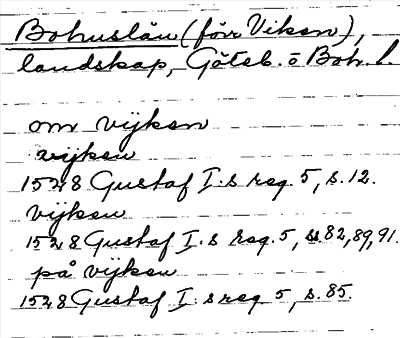 Bohuslän (förr Viken),
landskap, Göteb. o Boh. l.
om vijken
vijken
1528 Gustaf I:s reg. 5, s. 12.
vijken
1528 Gustaf I:s reg. 5, ss. 82, 89, 91.
på vijken
1528 Gustaf I:s reg. 5, s. 85.